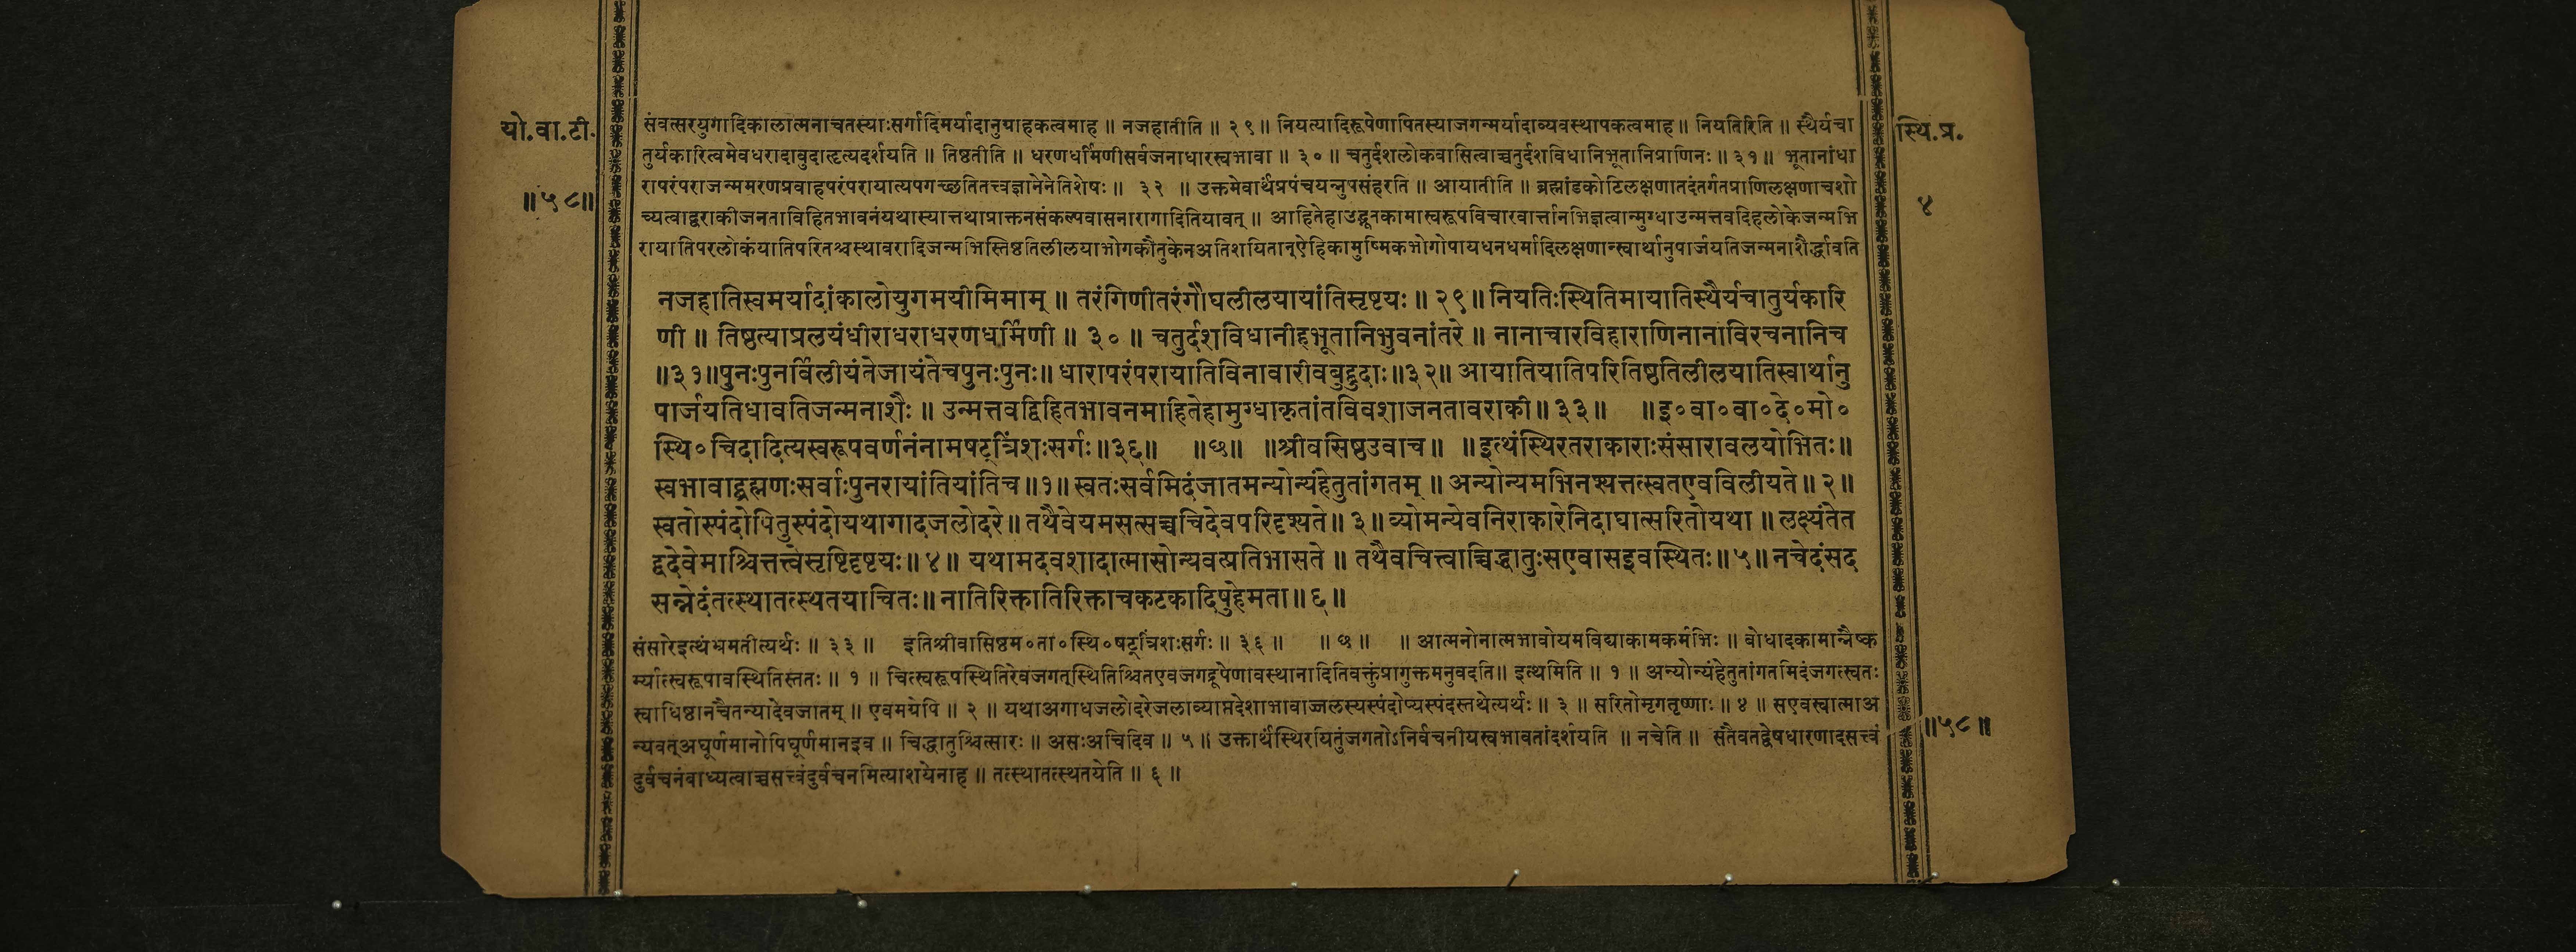 यो.वा.टी.
॥५८॥
संवत्सरयुगादिकालात्मनाचतस्याःसर्गादिमर्यादानुग्राहकत्वमाह ॥ नजहातीति ॥ २९॥ नियत्यादिरूपेणापितस्याजगन्मर्यादाव्यवस्थापकत्वमाह॥ नियतिरिति ॥ स्थैर्यचा
तुर्यकारित्वमेवधरादावुदाहृत्यदर्शयति ॥ तिष्ठतीति ॥ धरणधर्मिणीसर्वजनाधारस्वभावा ॥ ३० ॥ चतुर्दशलोकवासित्वाच्चतुर्दशविधानिभूतानिप्राणिनः ॥ ३१॥ भूतानांधा
रापरंपराजन्ममरणप्रवाहपरंपरायात्यपगच्छतितत्त्वज्ञानेनेतिशेषः ॥ ३२ ॥ उक्तमेवार्थंप्रपंचयन्नुपसंहरति ॥ आयातीति ॥ ब्रह्मांडकोटिलक्षणातदंतर्गतप्राणिलक्षणाचशो
च्यत्वाद्वराकीजनताविहितभावनंयथास्यात्तथाप्राक्तनसंकल्पवासनारागादितियावत् ॥ आहितेहाउद्भूतकामास्वरूपविचारवार्त्तानभिज्ञत्वान्मुग्धाउन्मत्तवदिहलोकेजन्मभि
रायातिपरलोकंयातिपरितश्चस्थावरादिजन्मभिस्तिष्ठतिलीलयाभोगकौतुकेनअतिशयितान्ऐहिकामुष्मिकभोगोपायधनधर्मादिलक्षणान्स्वार्थानुपार्जयतिजन्मनाशैर्द्धावति
स्थि.प्र.
४
नजहातिस्वमर्यादांकालोयुगमयीमिमाम् ॥ तरंगिणीतरंगौघलीलयायांतिसृष्टयः ॥ २९॥ नियतिःस्थितिमायातिस्थैर्यचातुर्यकारि
णी ॥ तिष्ठत्याप्रलयंधीराधराधरणधर्मिणी ॥ ३० ॥ चतुर्दशविधानीहभूतानिभुवनांतरे ॥ नानाचारविहाराणिनानाविरचनानिच
॥३१॥पुनःपुनर्विलीयंतेजायंतेचपुनःपुनः॥ धारापरंपरायातिविनावारीवबुद्बुदाः॥३२॥ आयातियातिपरितिष्ठतिलीलयातिस्वार्थानु
पार्जयतिधावतिजन्मनाशैः ॥ उन्मत्तवद्विहितभावनमाहितेहामुग्धाकृतांतविवशाजनतावराकी॥ ३३॥ ॥इ०वा०वा०दे०मो०
स्थि०चिदादित्यस्वरूपवर्णनंनामषट्त्रिंशःसर्गः॥३६॥ ॥७॥ ॥श्रीवसिष्ठउवाच॥ ॥इत्थंस्थिरतराकाराःसंसारावलयोभितः॥
स्वभावाद्ब्रह्मणःसर्वाःपुनरायांतियांतिच॥१॥ स्वतःसर्वमिदंजातमन्योन्यंहेतुतांगतम् ॥ अन्योन्यमभिनश्यत्तत्स्वतएवविलीयते॥ २॥
स्वतोस्पंदोपितुस्पंदोयथागादजलोदरे॥ तथैवेयमसत्सच्चचिदेवपरिदृश्यते॥ ३॥ व्योमन्येवनिराकारेनिदाघात्सरितोयथा ॥ लक्ष्यंतेत
द्वदेवेमाश्चित्तत्त्वेसृष्टिदृष्टयः॥४॥ यथामदवशादात्मासोन्यवत्प्रतिभासते ॥ तथैवचित्त्वाच्चिद्धातुःसएवासइवस्थितः॥५॥ नचेदंसद
सन्नेदंतत्स्थातत्स्थतयाचितः॥ नातिरिक्तातिरिक्ताचकटकादिषुहेमता॥६॥
संसारेइत्थंभ्रमतीत्यर्थः ॥ ३३ ॥ इतिश्रीवासिष्ठम०ता०स्थि०षट्त्रिंशःसर्गः ॥ ३६ ॥ ॥ ७ ॥ ॥ आत्मनोनात्मभावोयमविद्याकामकर्मभिः ॥ बोधादकामान्नैष्क
र्म्यात्स्वरूपावस्थितिस्ततः ॥ १ ॥ चित्स्वरूपस्थितिरेवजगत्स्थितिश्चितएवजगद्रूपेणावस्थानादितिवक्तुंप्रागुक्तमनुवदति॥ इत्थमिति ॥ १ ॥ अन्योन्यंहेतुतांगतमिदंजगत्स्वतः
स्वाधिष्ठानचैतन्यादेवजातम् ॥ एवमग्रेपि ॥ २ ॥ यथाअगाधजलोदरेजलाव्याप्तदेशाभावाज्जलस्यस्पंदोप्यस्पंदस्तथेत्यर्थः ॥ ३ ॥ सरितोमृगतृष्णाः ॥ ४ ॥ सएवस्वात्माअ
न्यवत्अघूर्णमानोपिघूर्णमानइव ॥ चिद्धातुश्चित्सारः ॥ असःअचिदिव ॥ ५ ॥ उक्तार्थंस्थिरयितुंजगतोऽनिर्वचनीयस्वभावतांदर्शयति ॥ नचेति ॥ सतैवतद्वेषधारणादसत्त्वं
दुर्वचनंबाध्यत्वाच्चसत्त्वंदुर्वचनमित्याशयेनाह ॥ तत्स्थातत्स्थतयेति ॥ ६ ॥
॥५८॥